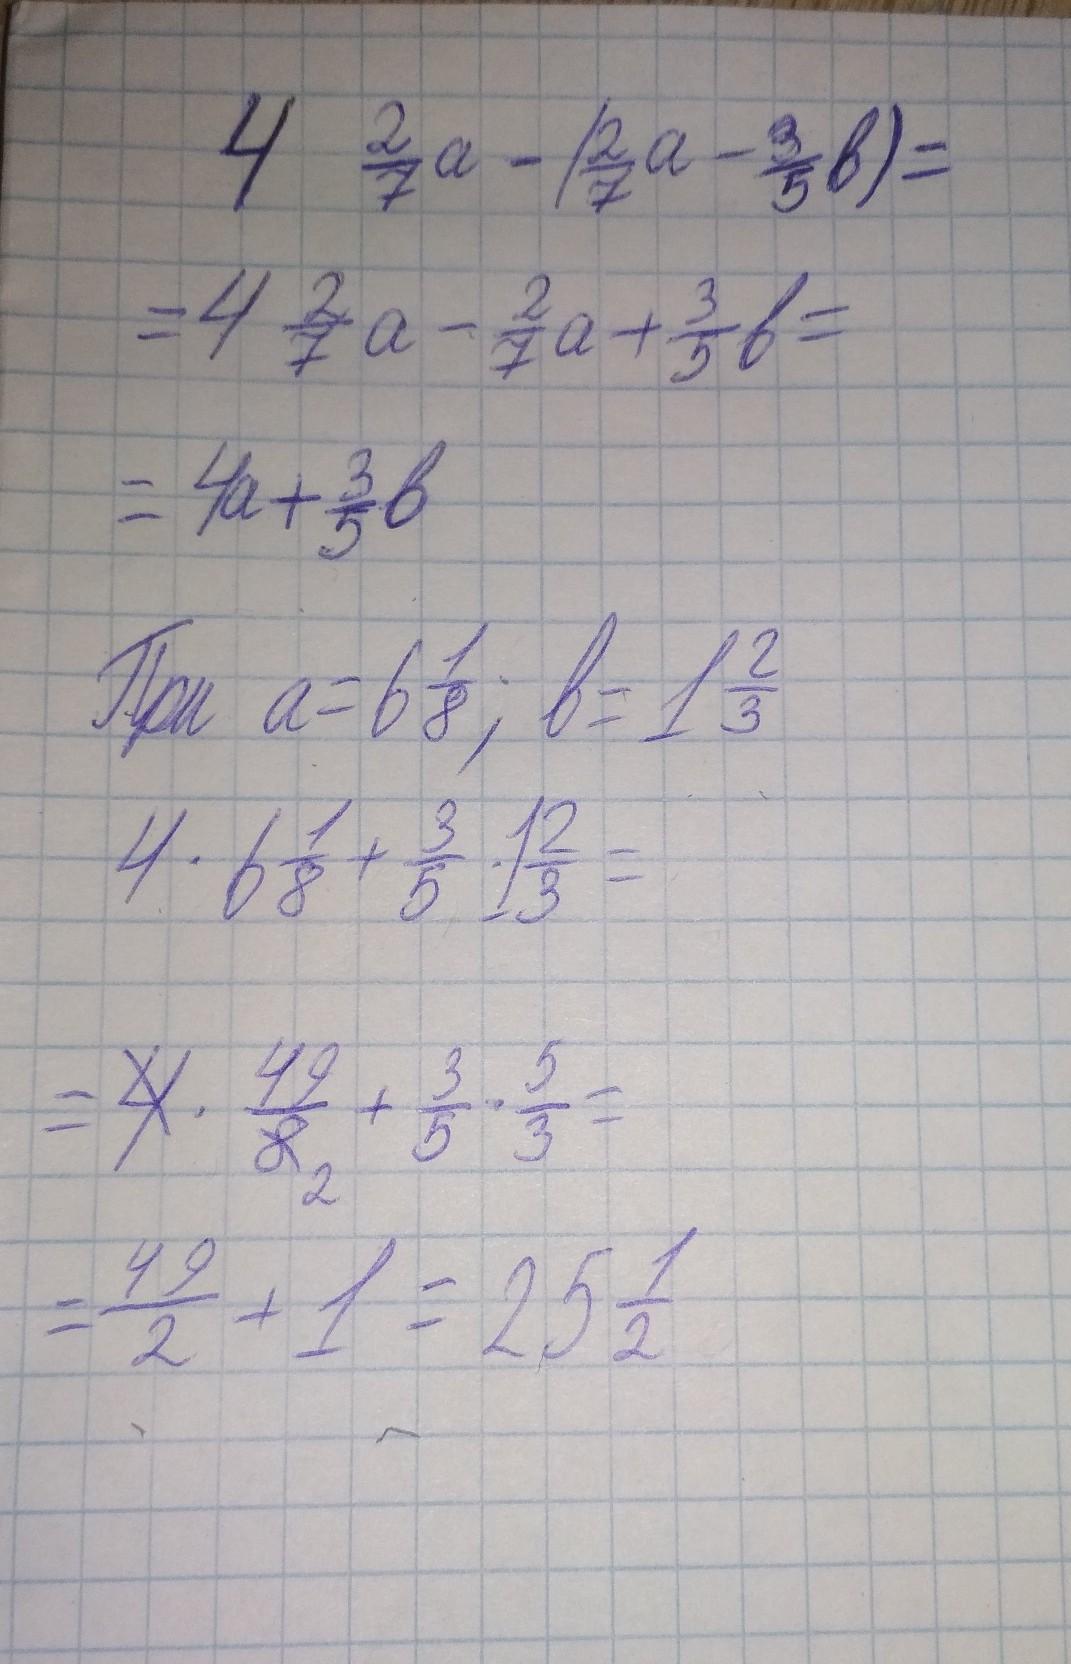 4 2/7 a - (2/7 a - 3/5 b) =
= 4 2/7 a - 2/7 a + 3/5 b =
= 4a + 3/5 b
При a = 6 1/8; b = 1 2/3
4 · 6 1/8 + 3/5 · 1 2/3 =
= 4 · 49/8 2 + 3/5 · 5/3 =
= 49/2 + 1 = 25 1/2